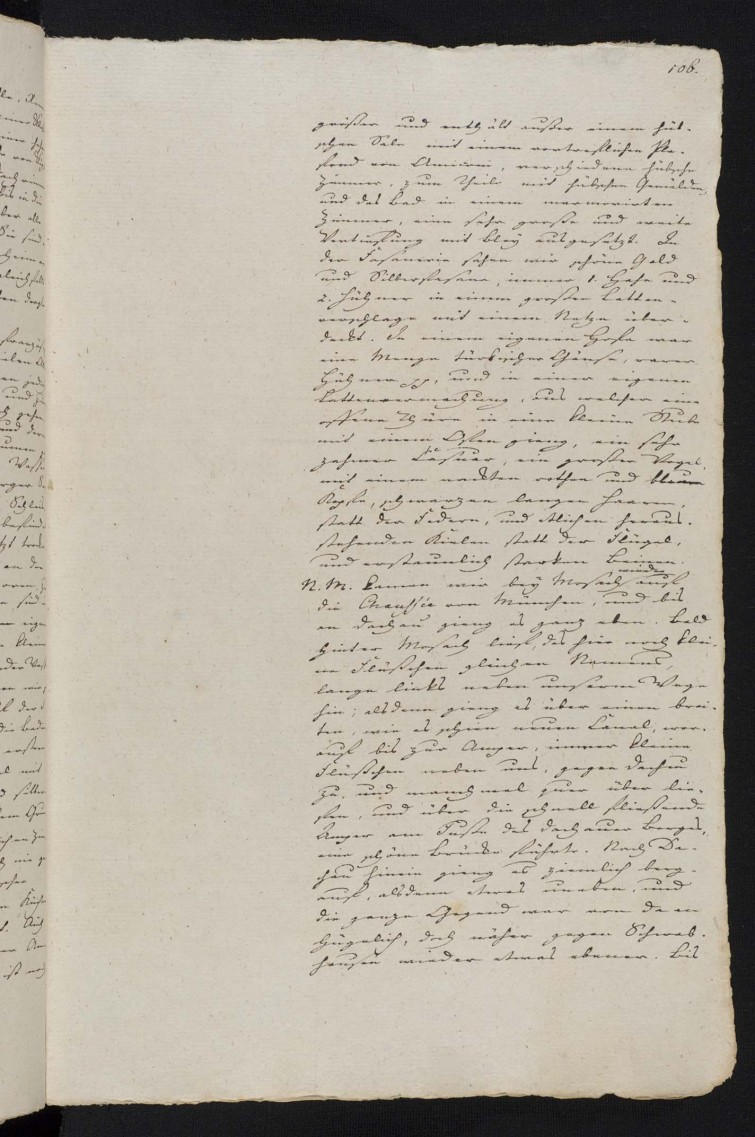 106.
größer und enthält außer einem hüb-
schen Sale mit einem vortreflichen Pla-
fond von Amiconi, verschiedene hübsche
Zimmer, zum Theile mit hübschen Gemälden,
und das Bad in einem marmorirten
Zimmer, eine sehr große und weite
Vertiefung mit Bley ausgesetzt. In
der Fasanerie sahen wir schöne Gold
und Silberfasane, immer 1. Hahn und
2. Hühner in einem großen Latten-
verschlage mit einem Netze über-
deckt. In einem eigenen Hofe war
eine Menge türkischer Gänse, rarer
Hühner pp, und in einer eigenen
Lattenvermachung, aus welcher eine
offene Thüre in eine kleine Stube
mit einem Ofen gieng, ein sehr
zahmer Casuar, ein großer Vogel,
mit einem nackten rothen und blauen
Kopfe, schwarzen langen Haaren,
statt der Federn, und etlichen heraus-
stehenden Kielen statt der Flügel,
und erstaunlich starken Beinen.
N. M. kamen wir bey Mosach wieder auf
die Chaussée von München, und bis
an Dachau gieng es ganz eben. Bald
hinter Mosach lief, das hier noch klei-
ne Flüßchen gleichen Namens,
lange links neben unserm Wege
hin; alsdenn gieng es über einen brei-
ten, wie es schien neuen Canal, wor-
auf bis zur Amper, immer kleine
Flüßchen neben uns, gegen Dachau
zu, und manchmal quer über lie-
fen, und über die schnell fließende
Amper am Fuße des Dachauer Berges,
eine schöne Brücke führte. Nach Da-
chau hinein gieng es ziemlich berg-
auf, alsdenn etwas uneben, und
die ganze Gegend war von da an
hügelich, doch näher gegen Schwab-
hausen wieder etwas ebener. Bis